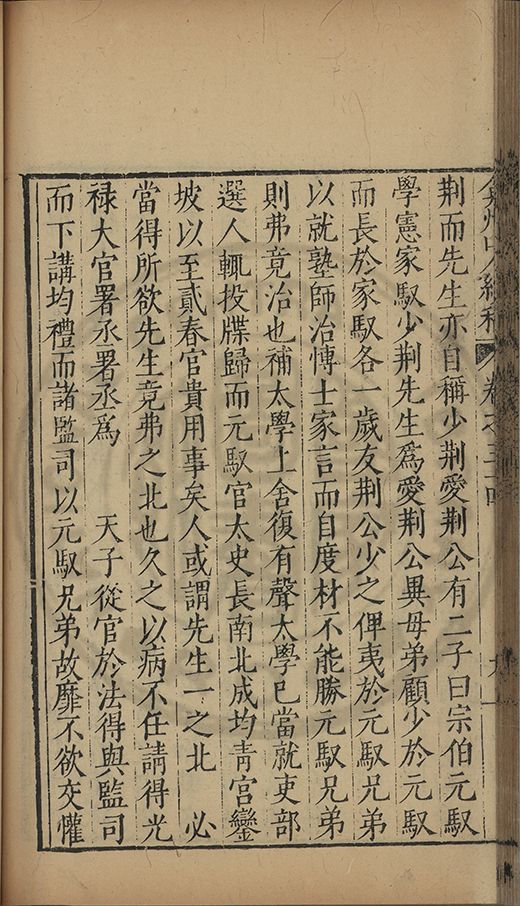 弇州山人續稿 卷之三四 九
荆而先生亦自稱少荆愛荆公有二子曰宗伯元馭
學憲家馭少荆先生爲愛荆公異母弟顧少於元馭
而長於家馭各一歲友荆公少之俾夷於元馭兄弟
以就塾師治博士家言而自度材不能勝元馭兄弟
則弗竟治也補太學上舍復有聲太學已當就吏部
選人輒投牒歸而元馭官太史長南北成均青宮鑾
坡以至貳春官貴用事矣人或謂先生一之北 必
當得所欲先生竟弗之北也久之以病不任請得光
禄大官署丞署丞爲 天子從官於法得與監司
而下講均禮而諸監司以元馭兄弟故靡不欲交懽